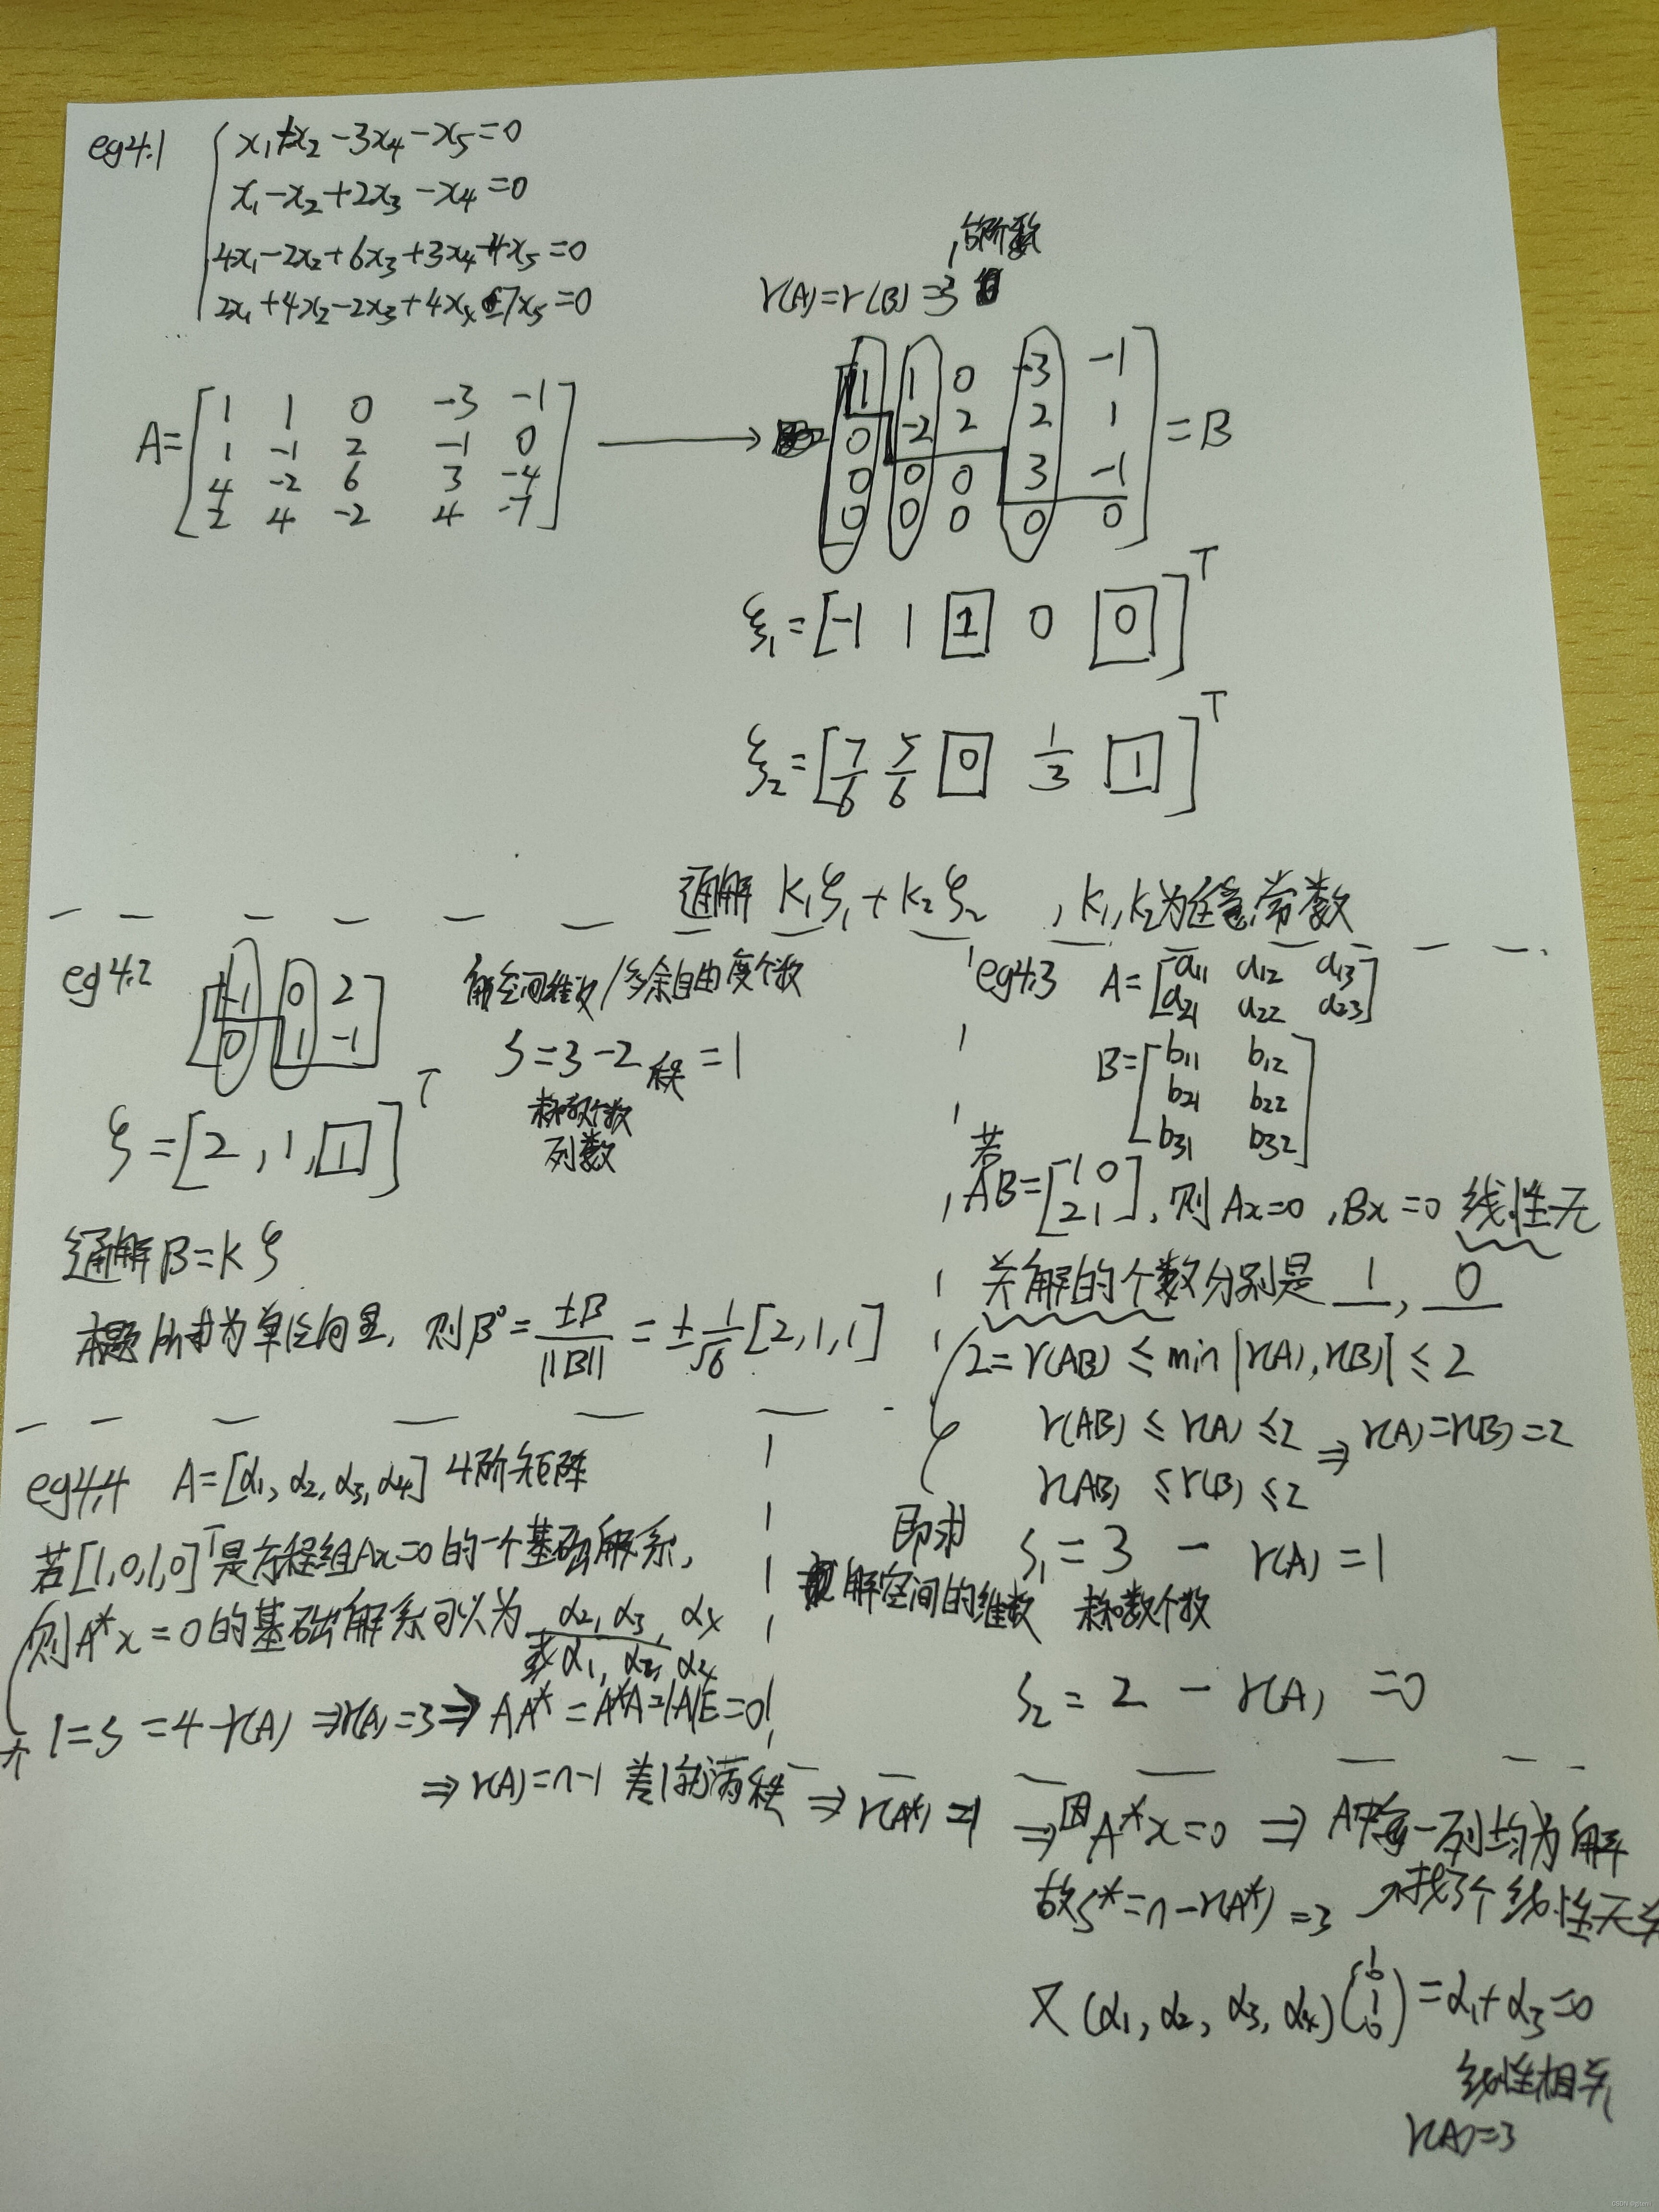 eg4.1
x₁+x₂-3x₄-x₅=0
x₁-x₂+2x₃-x₄=0
4x₁-2x₂+6x₃+3x₄-4x₅=0
2x₁+4x₂-2x₃+4x₄-7x₅=0
的阶数
r(A)=r(B)=3
A=[1 1 0 -3 -1
1 -1 2 -1 0
4 -2 6 3 -4
2 4 -2 4 -7]
→
[1 1 0 -3 -1
0 -2 2 2 1
0 0 0 3 -1
0 0 0 0 0] =B
ξ₁=[-1 1 1 0 0]ᵀ
ξ₂=[7/6 5/6 0 1/3 1]ᵀ
通解 k₁ξ₁+k₂ξ₂ ,k₁,k₂为任意常数
eg4.2
[-1 0 2
0 1 -1]
解空间维数/多余自由度个数
S=3-2秩=1
未知数个数
列数
ξ=[2,1,1]ᵀ
通解β=kξ
本题所求为单位向量, 则β⁰=±β/||β||=±1/√6[2,1,1]
eg4.3 A=[a₁₁ a₁₂ a₁₃
a₂₁ a₂₂ a₂₃]
B=[b₁₁ b₁₂
b₂₁ b₂₂
b₃₁ b₃₂]
若
AB=[1 0
2 1], 则Ax=0,Bx=0 线性无
关解的个数分别是 1, 0
2=r(AB)≤min|r(A),r(B)|≤2
r(AB)≤r(A)≤2
r(AB)≤r(B)≤2 ⇒r(A)=r(B)=2
即求 S₁=3-r(A)=1
解空间的维数 未知数个数
S₂=2-r(A)=0
eg4.4 A=[α₁,α₂,α₃,α₄] 4阶矩阵
若[1,0,1,0]ᵀ是方程组Ax=0的一个基础解系,
则A*x=0的基础解系可以为 α₂,α₃,α₄
或α₁,α₂,α₄
1=S=4-r(A)⇒r(A)=3⇒AA*=A*A=|A|E=0
⇒r(A)=n-1 差1就满秩 ⇒r(A*)=1 ⇒因A*x=0 ⇒A中每一列均为解
故S*=n-r(A*)=3 找3个线性无关
又(α₁,α₂,α₃,α₄)(1 0 1 0)=α₁+α₃=0
线性相关
r(A)=3